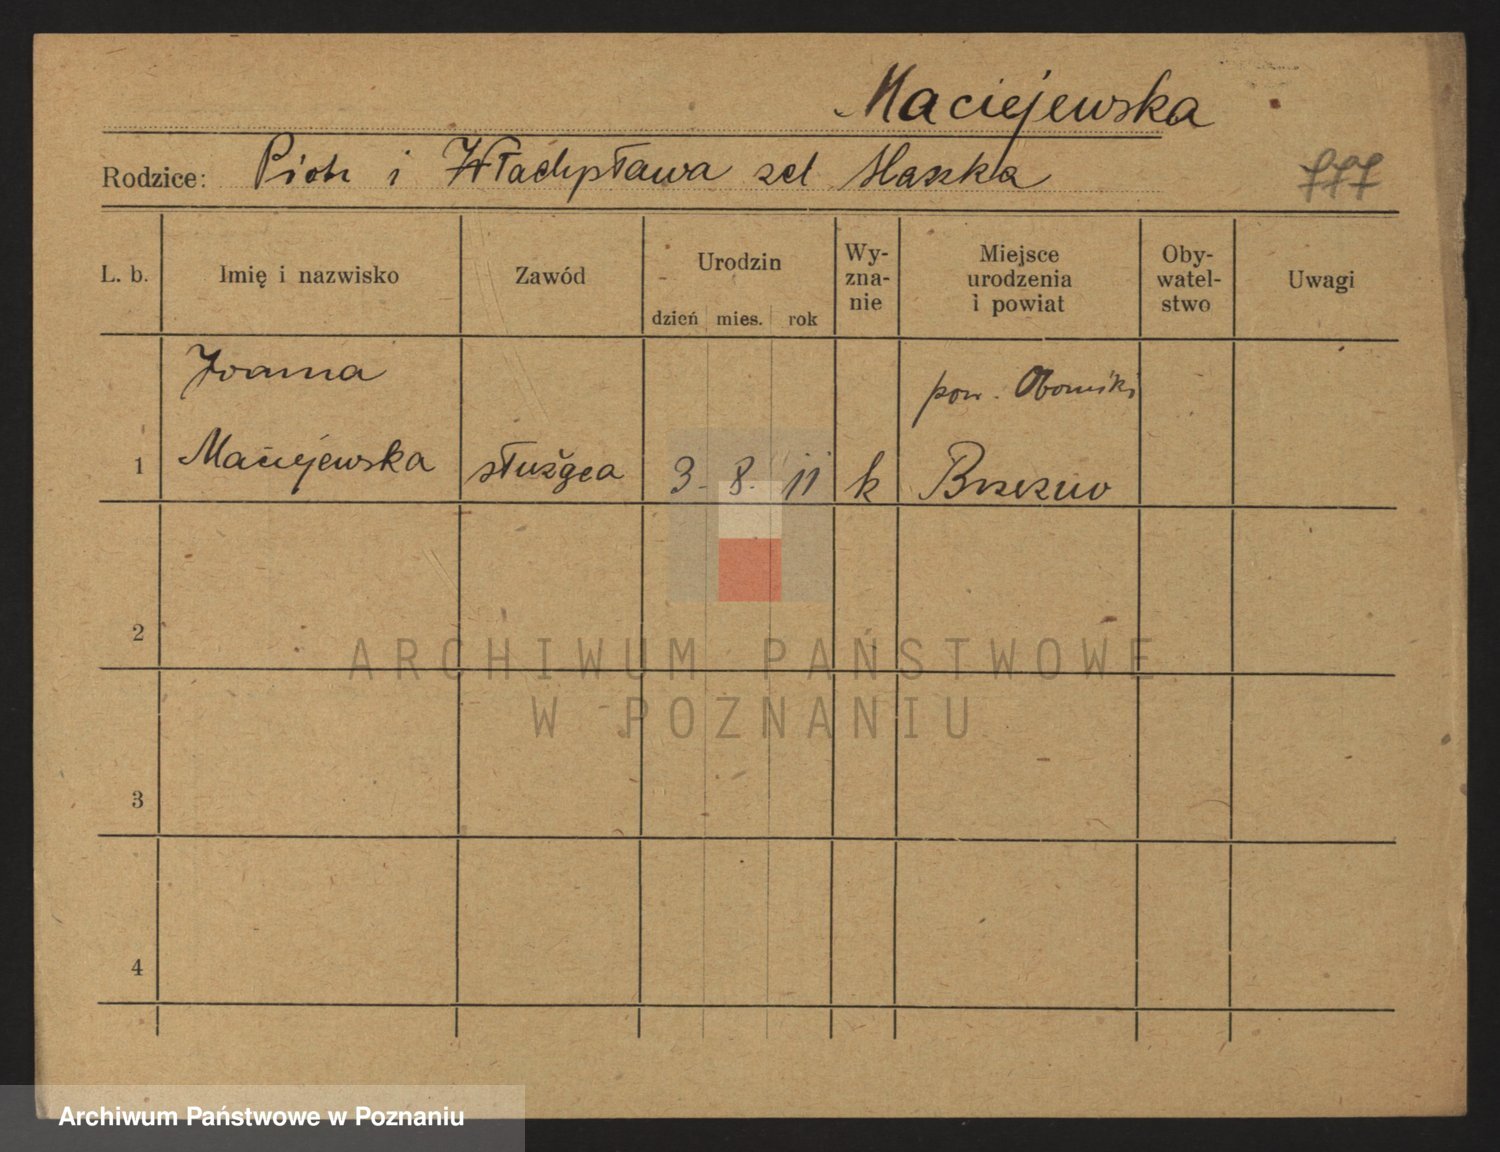 Maciejewska
Rodzice: Piotr i Władysława zd Maszka
777
L. b. Imię i nazwisko Zawód Urodzin dzień mies. rok Wy-zna-nie Miejsce urodzenia i powiat Oby-watel-stwo Uwagi
Joanna pow. Oborniki
1 Maciejewska służąca 3. 8. 11 k
2
ARCHIWUM PAŃSTWOWE
W POZNANIU
3
4
Archiwum Państwowe w Poznaniu